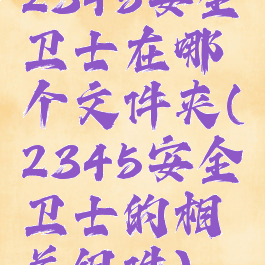 2345安全
卫士在哪
个文件夹(
2345安全
卫士的相
关组件)